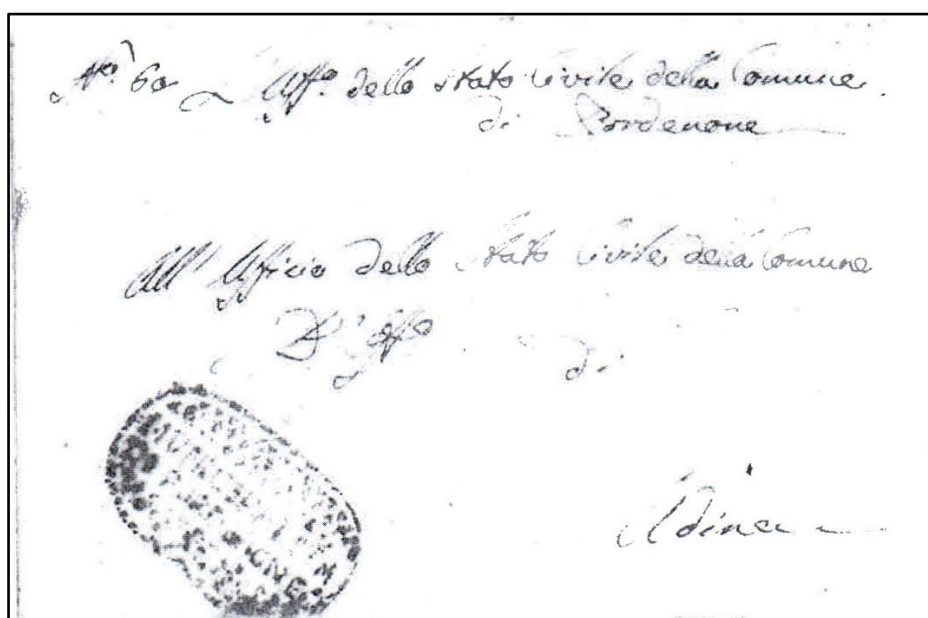 N.º 60 Uff.º dello Stato Civile della Comune
di Pordenone
All' Ufficio dello Stato Civile della Comune
D' Uff.º di
Udine